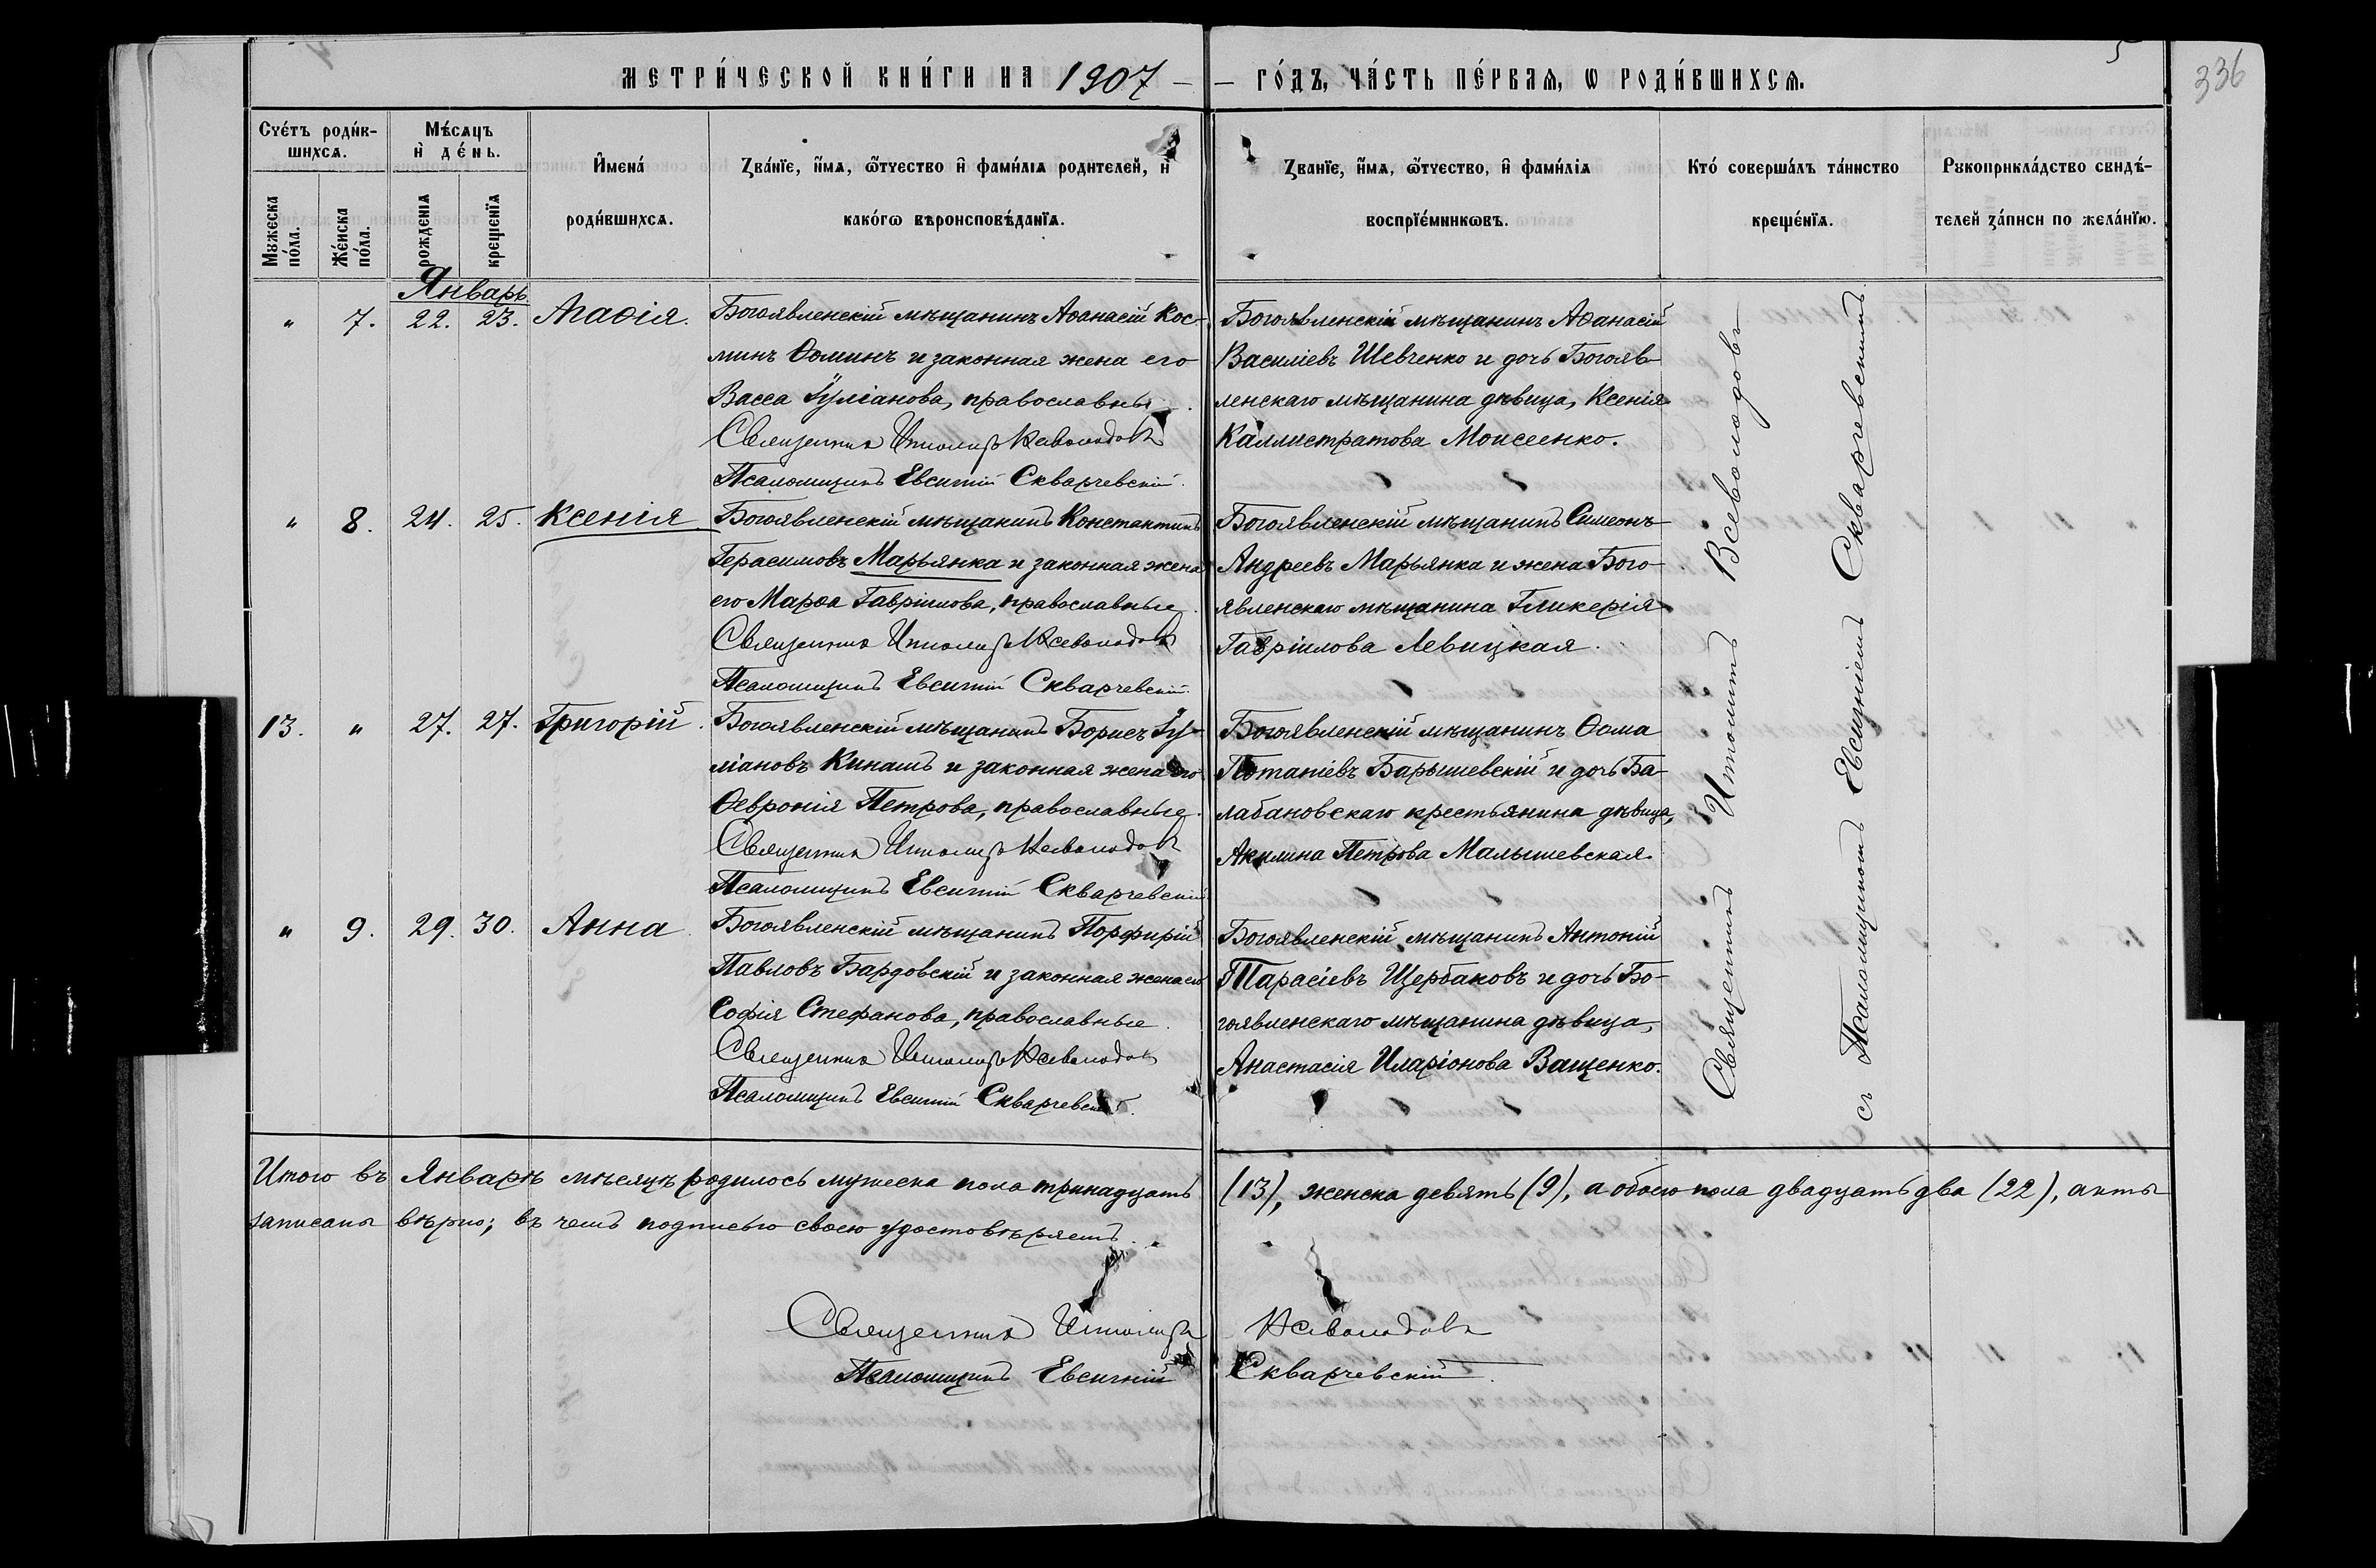 5
336
МЕТРИ́ЧЕСКОЙ КНИ́ГИ НА 1907 — — ГО́ДЪ, ЧА́СТЬ ПЕ́РВАѦ, Ѡ РОДИ́ВШИХСѦ.
Счéтъ роди́в-
шихсѧ.
Мужеска
по́ла.
Же́нска
по́ла.
Мѣ́сѧцъ
и҆ де́нь.
рожденїѧ
крещенїѧ
И҆мена́
роди́вшихсѧ.
Ꙁва́нїе, и҆́мѧ, ѻ҆́тчество и҆ фами́лїѧ родителей, и҆
како́гѡ вѣроисповѣ́данїѧ.
Ꙁванїе, и҆́мѧ, ѻ҆́тчество, и҆ фами́лїѧ
воспрїе́мникѡвъ.
Кто́ соверша́лъ та́инство
креще́нїѧ.
Рꙋкоприкла́дство свидѣ́-
телей ꙁа́писи по жела́нїю.
Январь
" 7. 22. 23. Агаѳія.
Богоявленскій мѣщанинъ Аѳанасій Кос-
минъ Ѳоминъ и законная жена его
Васса Іуліанова, православные.
Священникъ Ипполитъ Всеволодовъ
Псаломщикъ Евсигній Скварчевскій.
Богоявленскій мѣщанинъ Аѳанасій
Василіевъ Шевченко и дочь Богояв-
ленскаго мѣщанина дѣвица, Ксенія
Каллистратова Моисеенко.
" 8. 24. 25. Ксенія
Богоявленскій мѣщанинъ Константинъ
Герасимовъ Марьянка и законная жена
его Марѳа Гавріилова, православные.
Священникъ Ипполитъ Всеволодовъ
Псаломщикъ Евсигній Скварчевскій.
Богоявленскій мѣщанинъ Симеонъ
Андреевъ Марьянка и жена Бого-
явленскаго мѣщанина Гликерія
Гавріилова Левицкая.
13. " 27. 27. Григорій.
Богоявленскій мѣщанинъ Борисъ Іу-
ліановъ Кинашъ и законная жена его
Ѳевронія Петрова, православные.
Священникъ Ипполитъ Всеволодовъ
Псаломщикъ Евсигній Скварчевскій
Богоявленскій мѣщанинъ Ѳома
Потапіевъ Барышевскій и дочь Ба-
лабановскаго крестьянина дѣвица,
Акилина Петрова Малышевская.
" 9. 29. 30. Анна.
Богоявленскій мѣщанинъ Порфирій
Павловъ Бардовскій и законная жена его
Софія Стефанова, православные.
Священникъ Ипполитъ Всеволодовъ
Псаломщикъ Евсигній Скварчевскій.
Богоявленскій мѣщанинъ Антоній
Тарасіевъ Щербаковъ и дочь Бо-
гоявленскаго мѣщанина дѣвица,
Анастасія Иларіонова Ващенко.
Священникъ Ипполитъ Всеволодовъ
съ Псаломщикомъ Евсигніемъ Скварчевскимъ
Итого въ Январѣ мѣсяцѣ родилось мужеска пола тринадцать (13), женска девять (9), а обоего пола двадцать два (22), акты
записаны вѣрно; въ чемъ подписью своею удостовѣряемъ.
Священникъ Ипполитъ Всеволодовъ
Псаломщикъ Евсигній Скварчевскій.